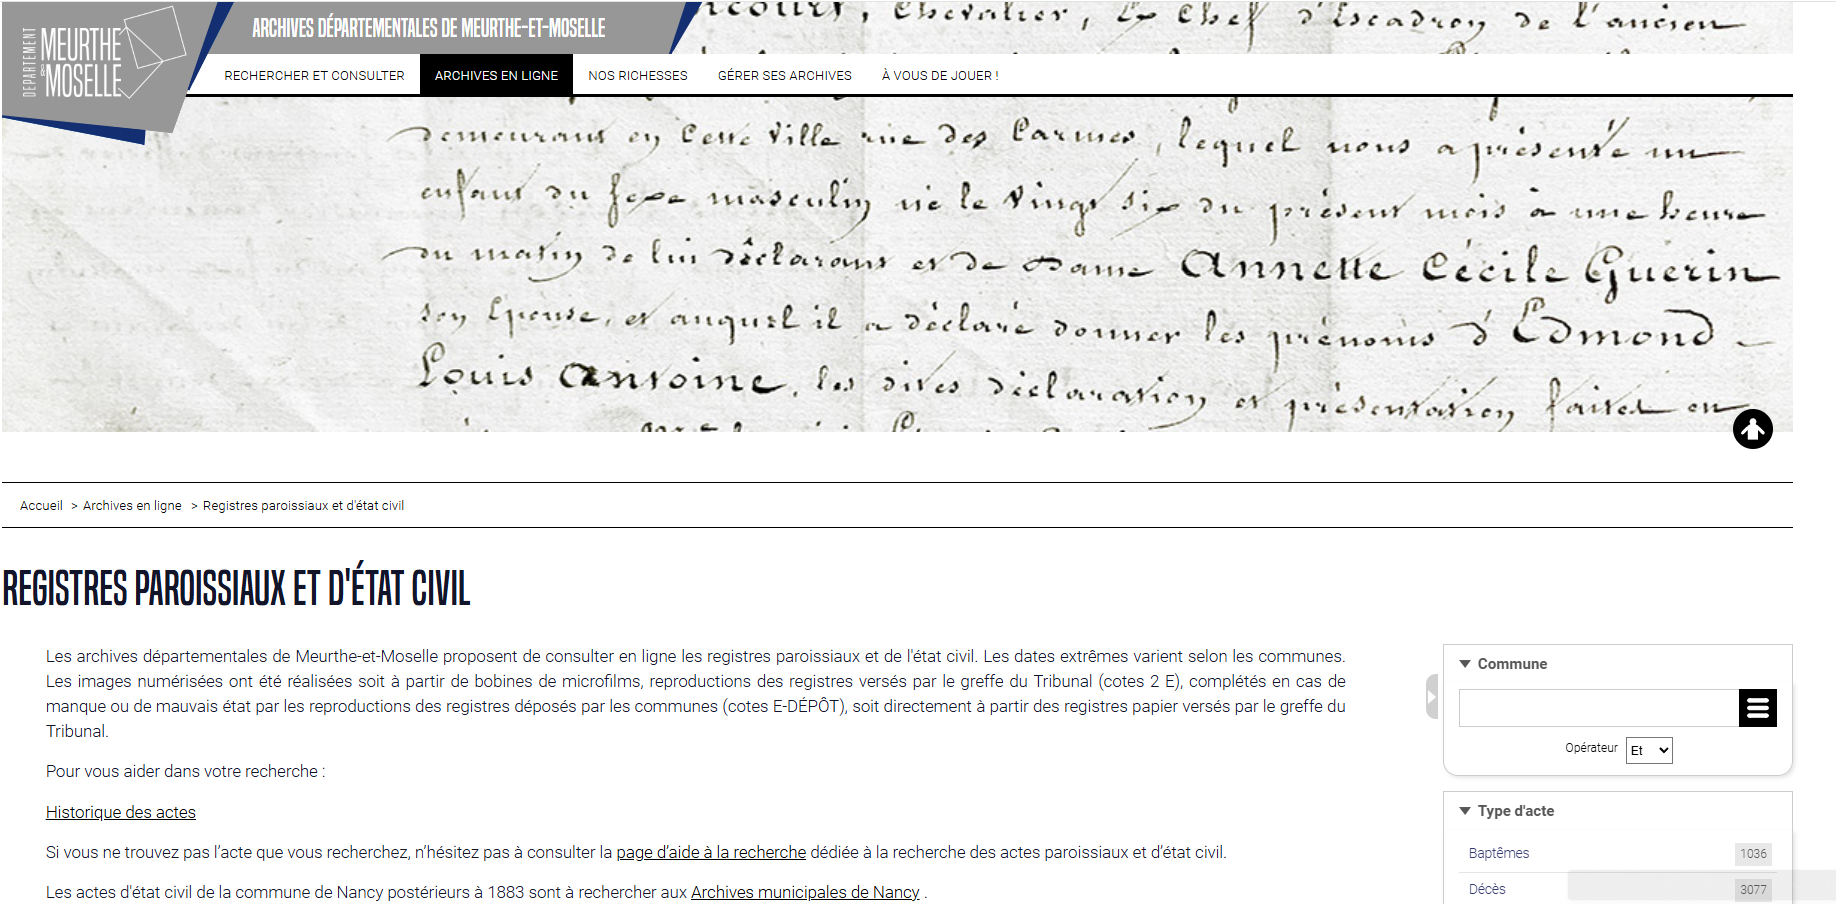 DEPARTEMENT
MEURTHE
& MOSELLE
ARCHIVES DÉPARTEMENTALES DE MEURTHE-ET-MOSELLE
RECHERCHER ET CONSULTER ARCHIVES EN LIGNE NOS RICHESSES GÉRER SES ARCHIVES À VOUS DE JOUER !
, Chevalier, Ex Chef d'Escadron de l'ancien
demeurant en cette Ville rue des Carmes, lequel nous a présenté un
enfant du sexe masculin né le Vingt six du présent mois à une heure
du matin de lui déclarant et de Dame Annette Cécile Guerin
son Epouse, et auquel il a déclaré donner les prénoms d'Edmond
Louis Antoine, les dites déclaration et présentation faites en
Accueil > Archives en ligne > Registres paroissiaux et d'état civil
REGISTRES PAROISSIAUX ET D'ÉTAT CIVIL
Les archives départementales de Meurthe-et-Moselle proposent de consulter en ligne les registres paroissiaux et de l'état civil. Les dates extrêmes varient selon les communes.
Les images numérisées ont été réalisées soit à partir de bobines de microfilms, reproductions des registres versés par le greffe du Tribunal (cotes 2 E), complétés en cas de
manque ou de mauvais état par les reproductions des registres déposés par les communes (cotes E-DÉPÔT), soit directement à partir des registres papier versés par le greffe du
Tribunal.
Pour vous aider dans votre recherche :
Historique des actes
Si vous ne trouvez pas l’acte que vous recherchez, n’hésitez pas à consulter la page d’aide à la recherche dédiée à la recherche des actes paroissiaux et d’état civil.
Les actes d'état civil de la commune de Nancy postérieurs à 1883 sont à rechercher aux Archives municipales de Nancy .
Commune
Opérateur Et
Type d'acte
Baptêmes 1036
Décès 3077